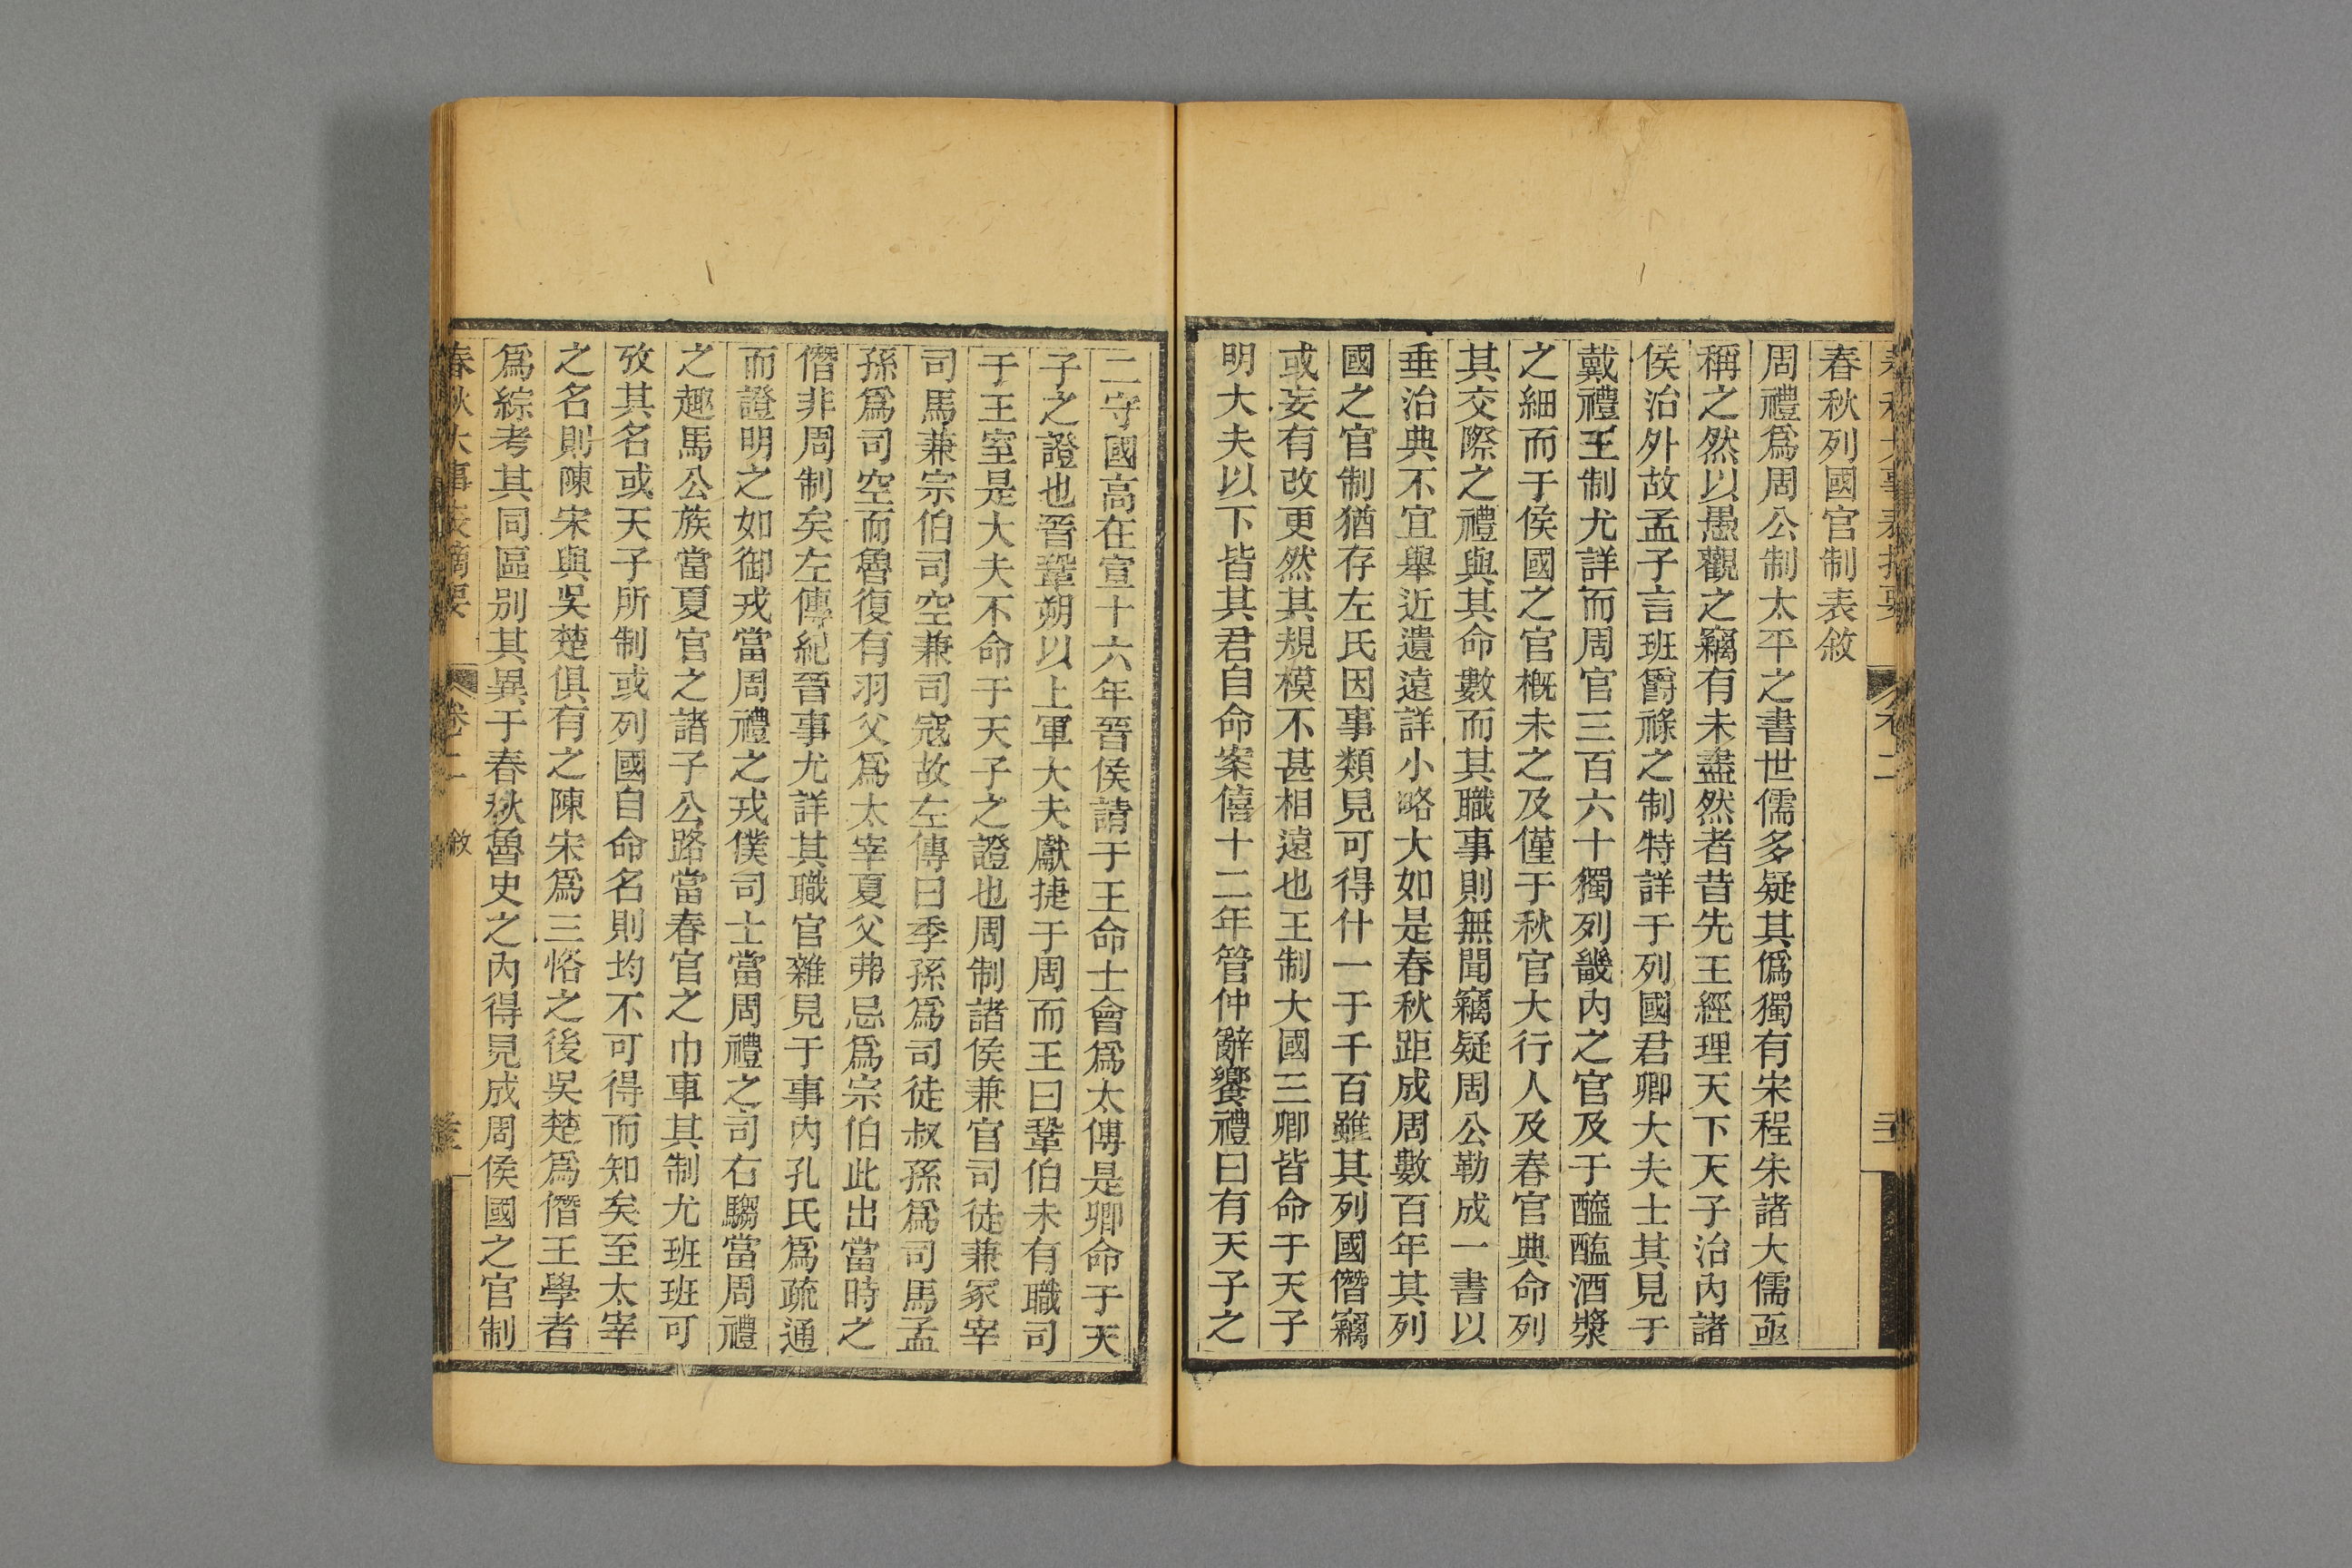 春秋列國官制表敘
周禮爲周公制太平之書世儒多疑其僞獨有宋程朱諸大儒亟
稱之然以愚觀之竊有未盡然者昔先王經理天下天子治內諸
侯治外故孟子言班爵祿之制特詳于列國君卿大夫士其見于
戴禮王制尤詳而周官三百六十獨列畿內之官及于醯醢酒漿
之細而于侯國之官槪未之及僅于秋官大行人及春官典命列
其交際之禮與其命數而其職事則無聞竊疑周公勒成一書以
垂治典不宜舉近遺遠詳小略大如是春秋距成周數百年其列
國之官制猶存左氏因事類見可得什一于千百雖其列國僭竊
或妄有改更然其規模不甚相遠也王制大國三卿皆命于天子
明大夫以下皆其君自命案僖十二年管仲辭饗禮曰有天子之
二守國高在宣十六年晉侯請于王命士會爲太傅是卿命于天
子之證也晉鞏朔以上軍大夫獻捷于周而王曰鞏伯未有職司
于王室是大夫不命于天子之證也周制諸侯兼官司徒兼冢宰
司馬兼宗伯司空兼司寇故左傳曰季孫爲司徒叔孫爲司馬孟
孫爲司空而魯復有羽父爲太宰夏父弗忌爲宗伯此出當時之
僭非周制矣左傳紀晉事尤詳其職官雜見于事內孔氏爲疏通
而證明之如御戎當周禮之戎僕司士當周禮之司右騶當周禮
之趣馬公族當夏官之諸子公路當春官之巾車其制尤班班可
攷其名或天子所制或列國自命名則均不可得而知矣至太宰
之名則陳宋與吳楚俱有之陳宋爲三恪之後吳楚爲僭王學者
爲綜考其同區別其異于春秋魯史之內得見成周侯國之官制
春秋大事表摘要 卷二 敘